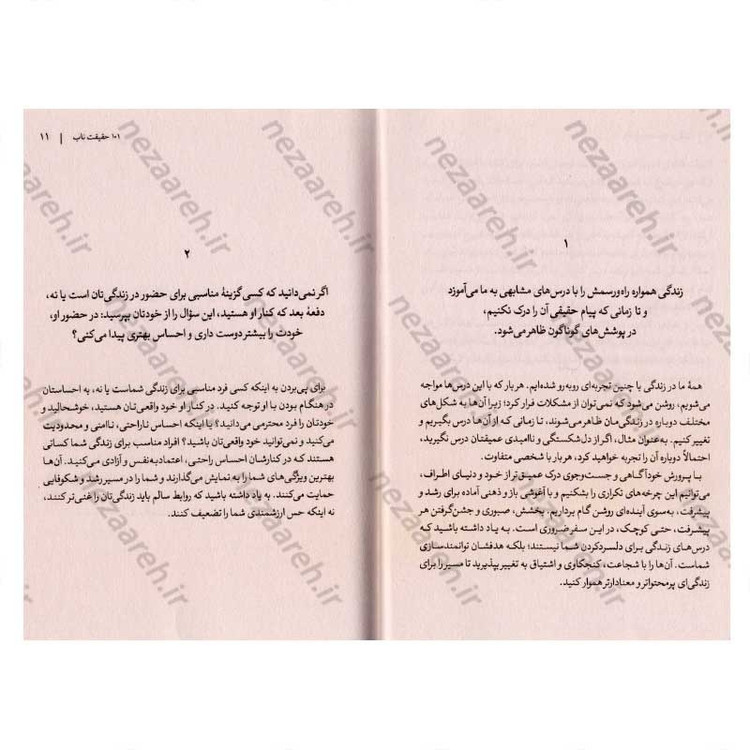 ۱
زندگی همواره راه‌ورسمش را با درس‌های مشابهی به ما می‌آموزد
و تا زمانی که پیام حقیقی آن را درک نکنیم،
در پوشش‌های گوناگون ظاهر می‌شود.
همهٔ ما در زندگی با چنین تجربه‌ای روبه‌رو شده‌ایم. هر بار که با این درس‌ها مواجه
می‌شویم، روشن می‌شود که نمی‌توان از مشکلات فرار کرد؛ زیرا آن‌ها به شکل‌های
مختلف دوباره در زندگی‌مان ظاهر می‌شوند، تا زمانی که از آن‌ها درس بگیریم و
تغییر کنیم. به‌عنوان مثال، اگر از دل‌شکستگی و ناامیدی عمیقتان درس نگیرید،
احتمالاً دوباره آن را تجربه خواهید کرد، هر بار با شخصی متفاوت.
با پرورش خودآگاهی و جست‌وجوی درک عمیق‌تر از خود و دنیای اطراف،
می‌توانیم این چرخه‌های تکراری را بشکنیم و با آغوشی باز و ذهنی آماده برای رشد و
پیشرفت، به‌سوی آینده‌ای روشن گام برداریم. بخشش، صبوری و جشن‌گرفتن هر
پیشرفت، حتی کوچک، در این سفر ضروری است. به یاد داشته باشید که
درس‌های زندگی برای دلسردکردن شما نیستند؛ بلکه هدفشان توانمندسازی
شماست. آن‌ها را با شجاعت، کنجکاوی و اشتیاق به تغییر بپذیرید تا مسیر را برای
زندگی‌ای پرمحتواتر و معنادارتر هموار کنید.
۱۰۱ حقیقت ناب | ۱۱
۲
اگر نمی‌دانید که کسی گزینهٔ مناسبی برای حضور در زندگی‌تان است یا نه،
دفعهٔ بعد که کنار او هستید، این سؤال را از خودتان بپرسید: در حضور او،
خودت را بیشتر دوست داری و احساس بهتری پیدا می‌کنی؟
برای پی‌بردن به اینکه کسی فرد مناسبی برای زندگی شماست یا نه، به احساستان
در هنگام بودن با او توجه کنید. در کنار او خود واقعی‌تان هستید، خوشحالید و
خودتان را فرد محترمی می‌دانید؟ یا اینکه احساس ناراحتی، ناامنی و محدودیت
می‌کنید و نمی‌توانید خود واقعی‌تان باشید؟ افراد مناسب برای زندگی شما کسانی
هستند که در کنارشان احساس راحتی، اعتمادبه‌نفس و آزادی می‌کنید. آن‌ها
بهترین ویژگی‌های شما را به نمایش می‌گذارند و شما را در مسیر رشد و شکوفایی
حمایت می‌کنند. به یاد داشته باشید که روابط سالم باید زندگی‌تان را غنی‌تر کنند،
نه اینکه حس ارزشمندی شما را تضعیف کنند.
nezaareh.ir